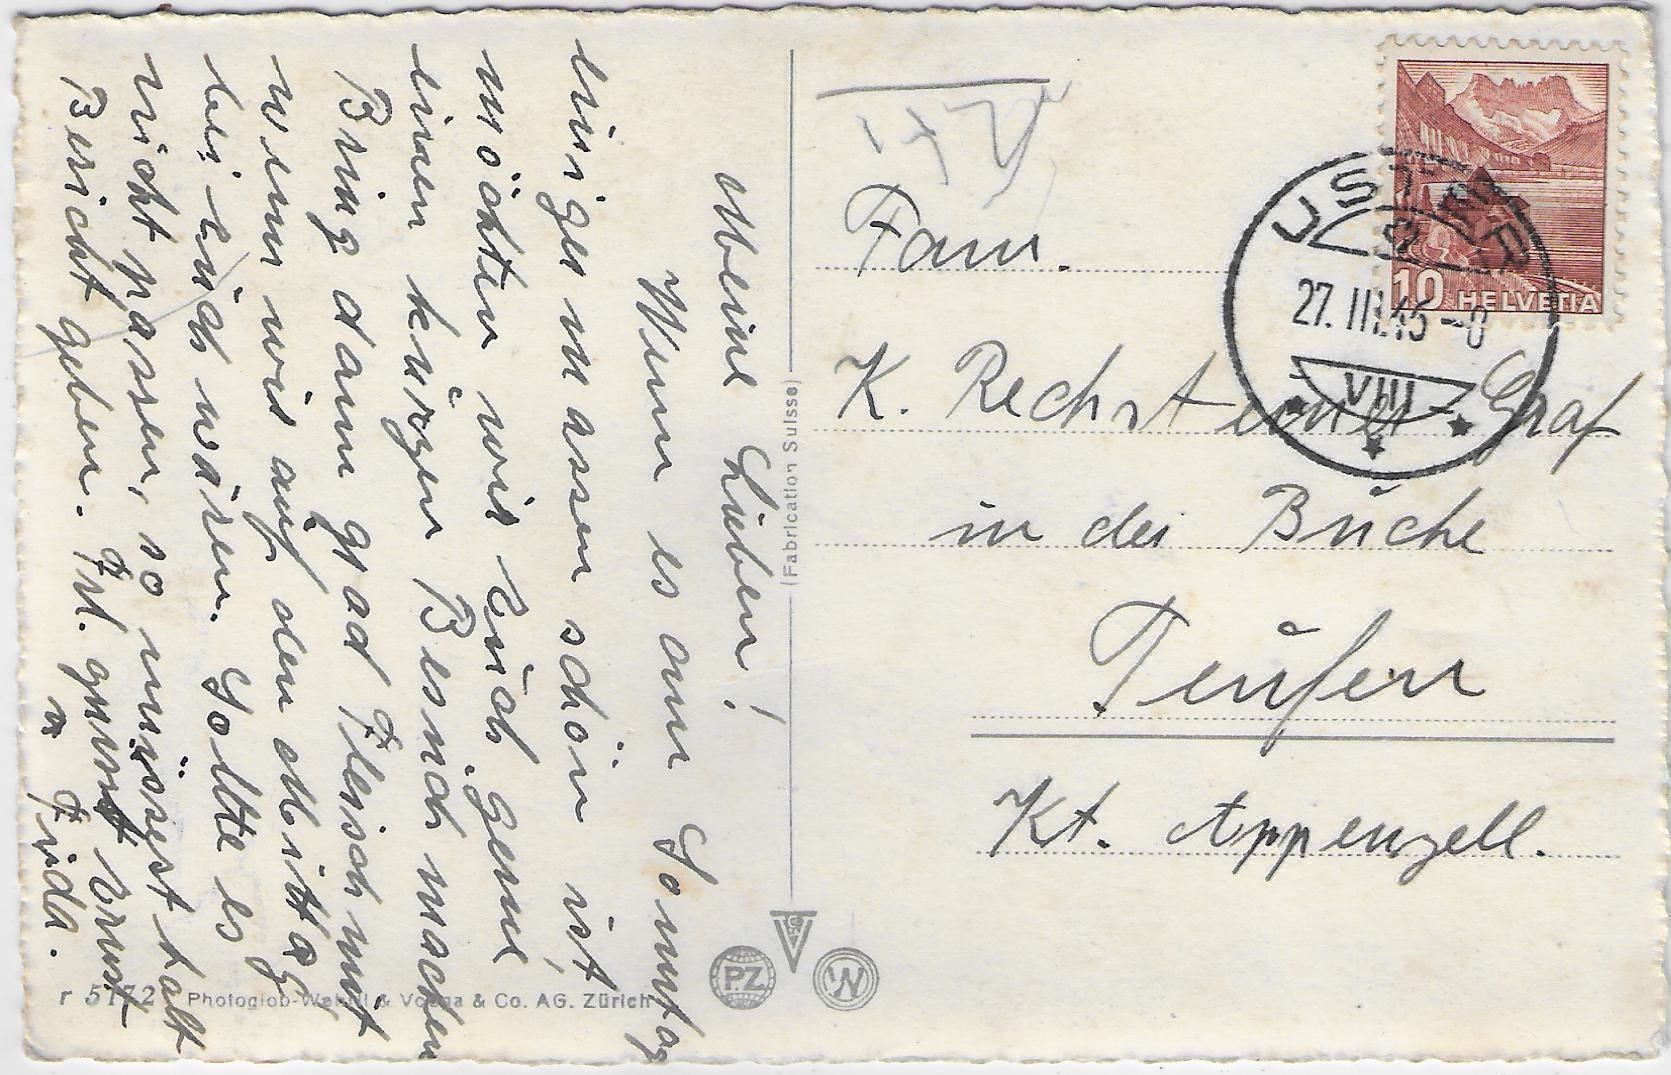 Meine Lieben!
Wenn es am Sonntag
einigermassen schön ist,
möchten wir Euch gerne
einen kurzen Besuch machen
Bring dann grad Fleisch mit
wenn wir auf den Mittag
bei Euch wären. Sollte es
nicht passen, so müsstest halt
Bericht geben. Frl. grüsst Ernst
u Frida.
r 5172 Photoglob-Wehrli & Vouga & Co. AG. Zürich
(Fabrication Suisse)
PZ
W
Fam.
K. Rechsteiner Graf
in der Büche
Teufen
Kt. Appenzell.
USTER
27. III. 45 - 8
VIII
10 HELVETIA